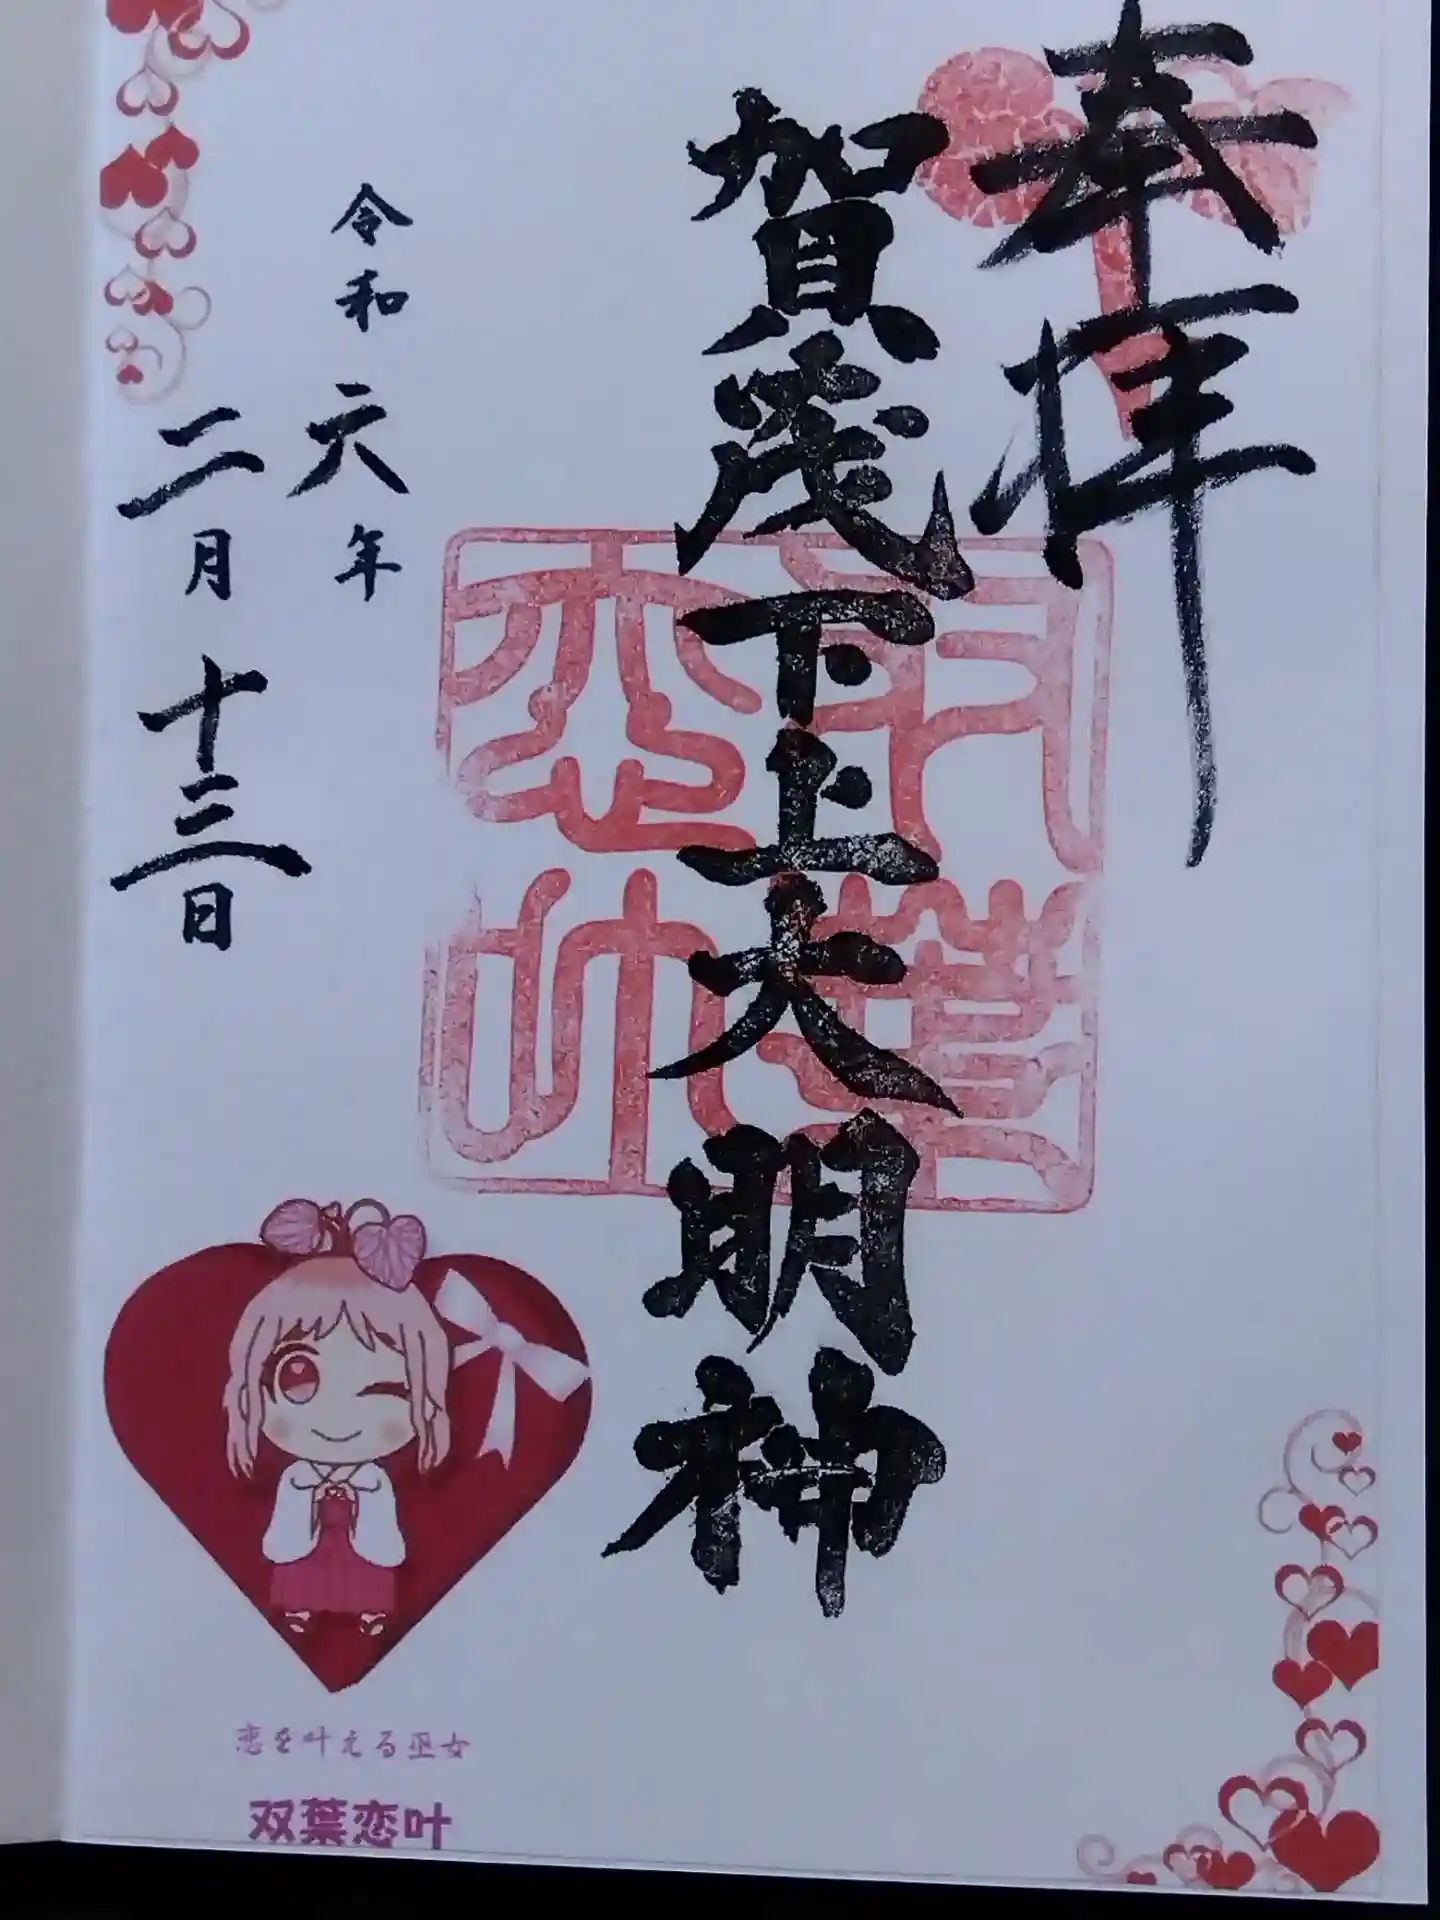 奉拝
賀茂下上大明神
双葉恋叶
令和六年
二月十三日
恋を叶える巫女
双葉恋叶